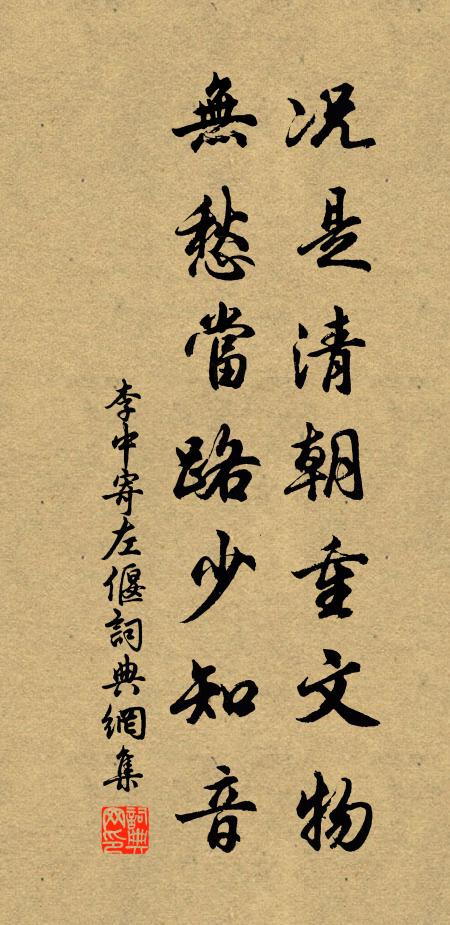 况是清朝重文物
無愁當路少知音
李中寄左偃詞典網集
詞典网印